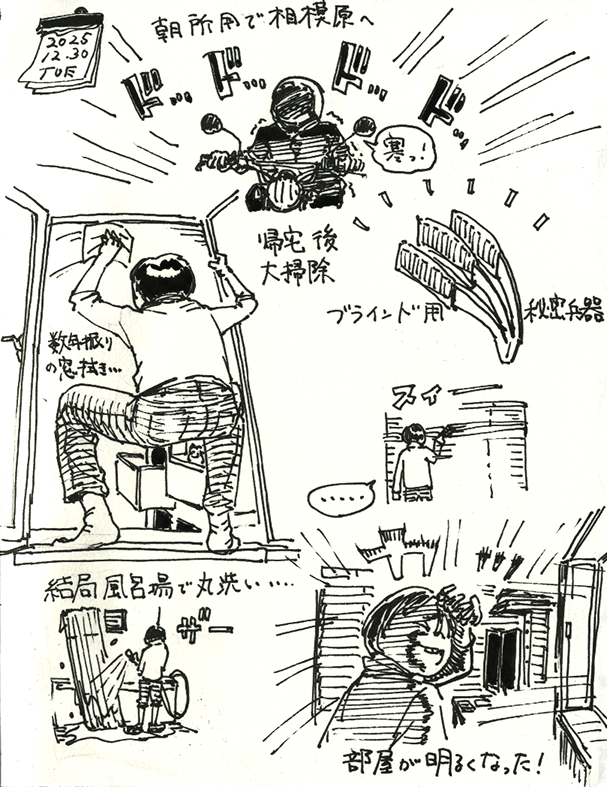 2025
12.30
TUE
朝所用で相模原へ
ドド…ドド…ド…ド…
寒っ!
帰宅後
大掃除
ブラインド用
秘密兵器
数年振り
の窓拭き…
スイーー
……
結局風呂場で丸洗い……
ザー
部屋が明るくなった!